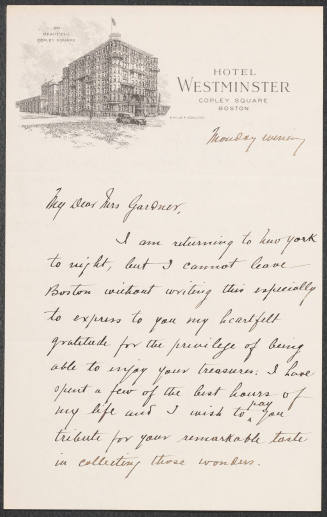 ON
BEAUTIFUL
COPLEY SQUARE
HOTEL
WESTMINSTER
COPLEY SQUARE
BOSTON
Monday evening
My Dear Mrs Gardner,
I am returning to New York
to night, but I cannot leave
Boston without writing this especially
to express to you my heartfelt
gratitude for the privilege of being
able to enjoy your treasures. I have
spent a few of the best hours of
my life and I wish to pay you
tribute for your remarkable taste
in collecting those wonders.